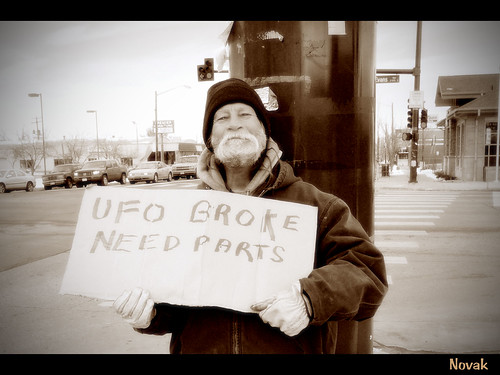 UFO BROKE
NEED PARTS
Novak